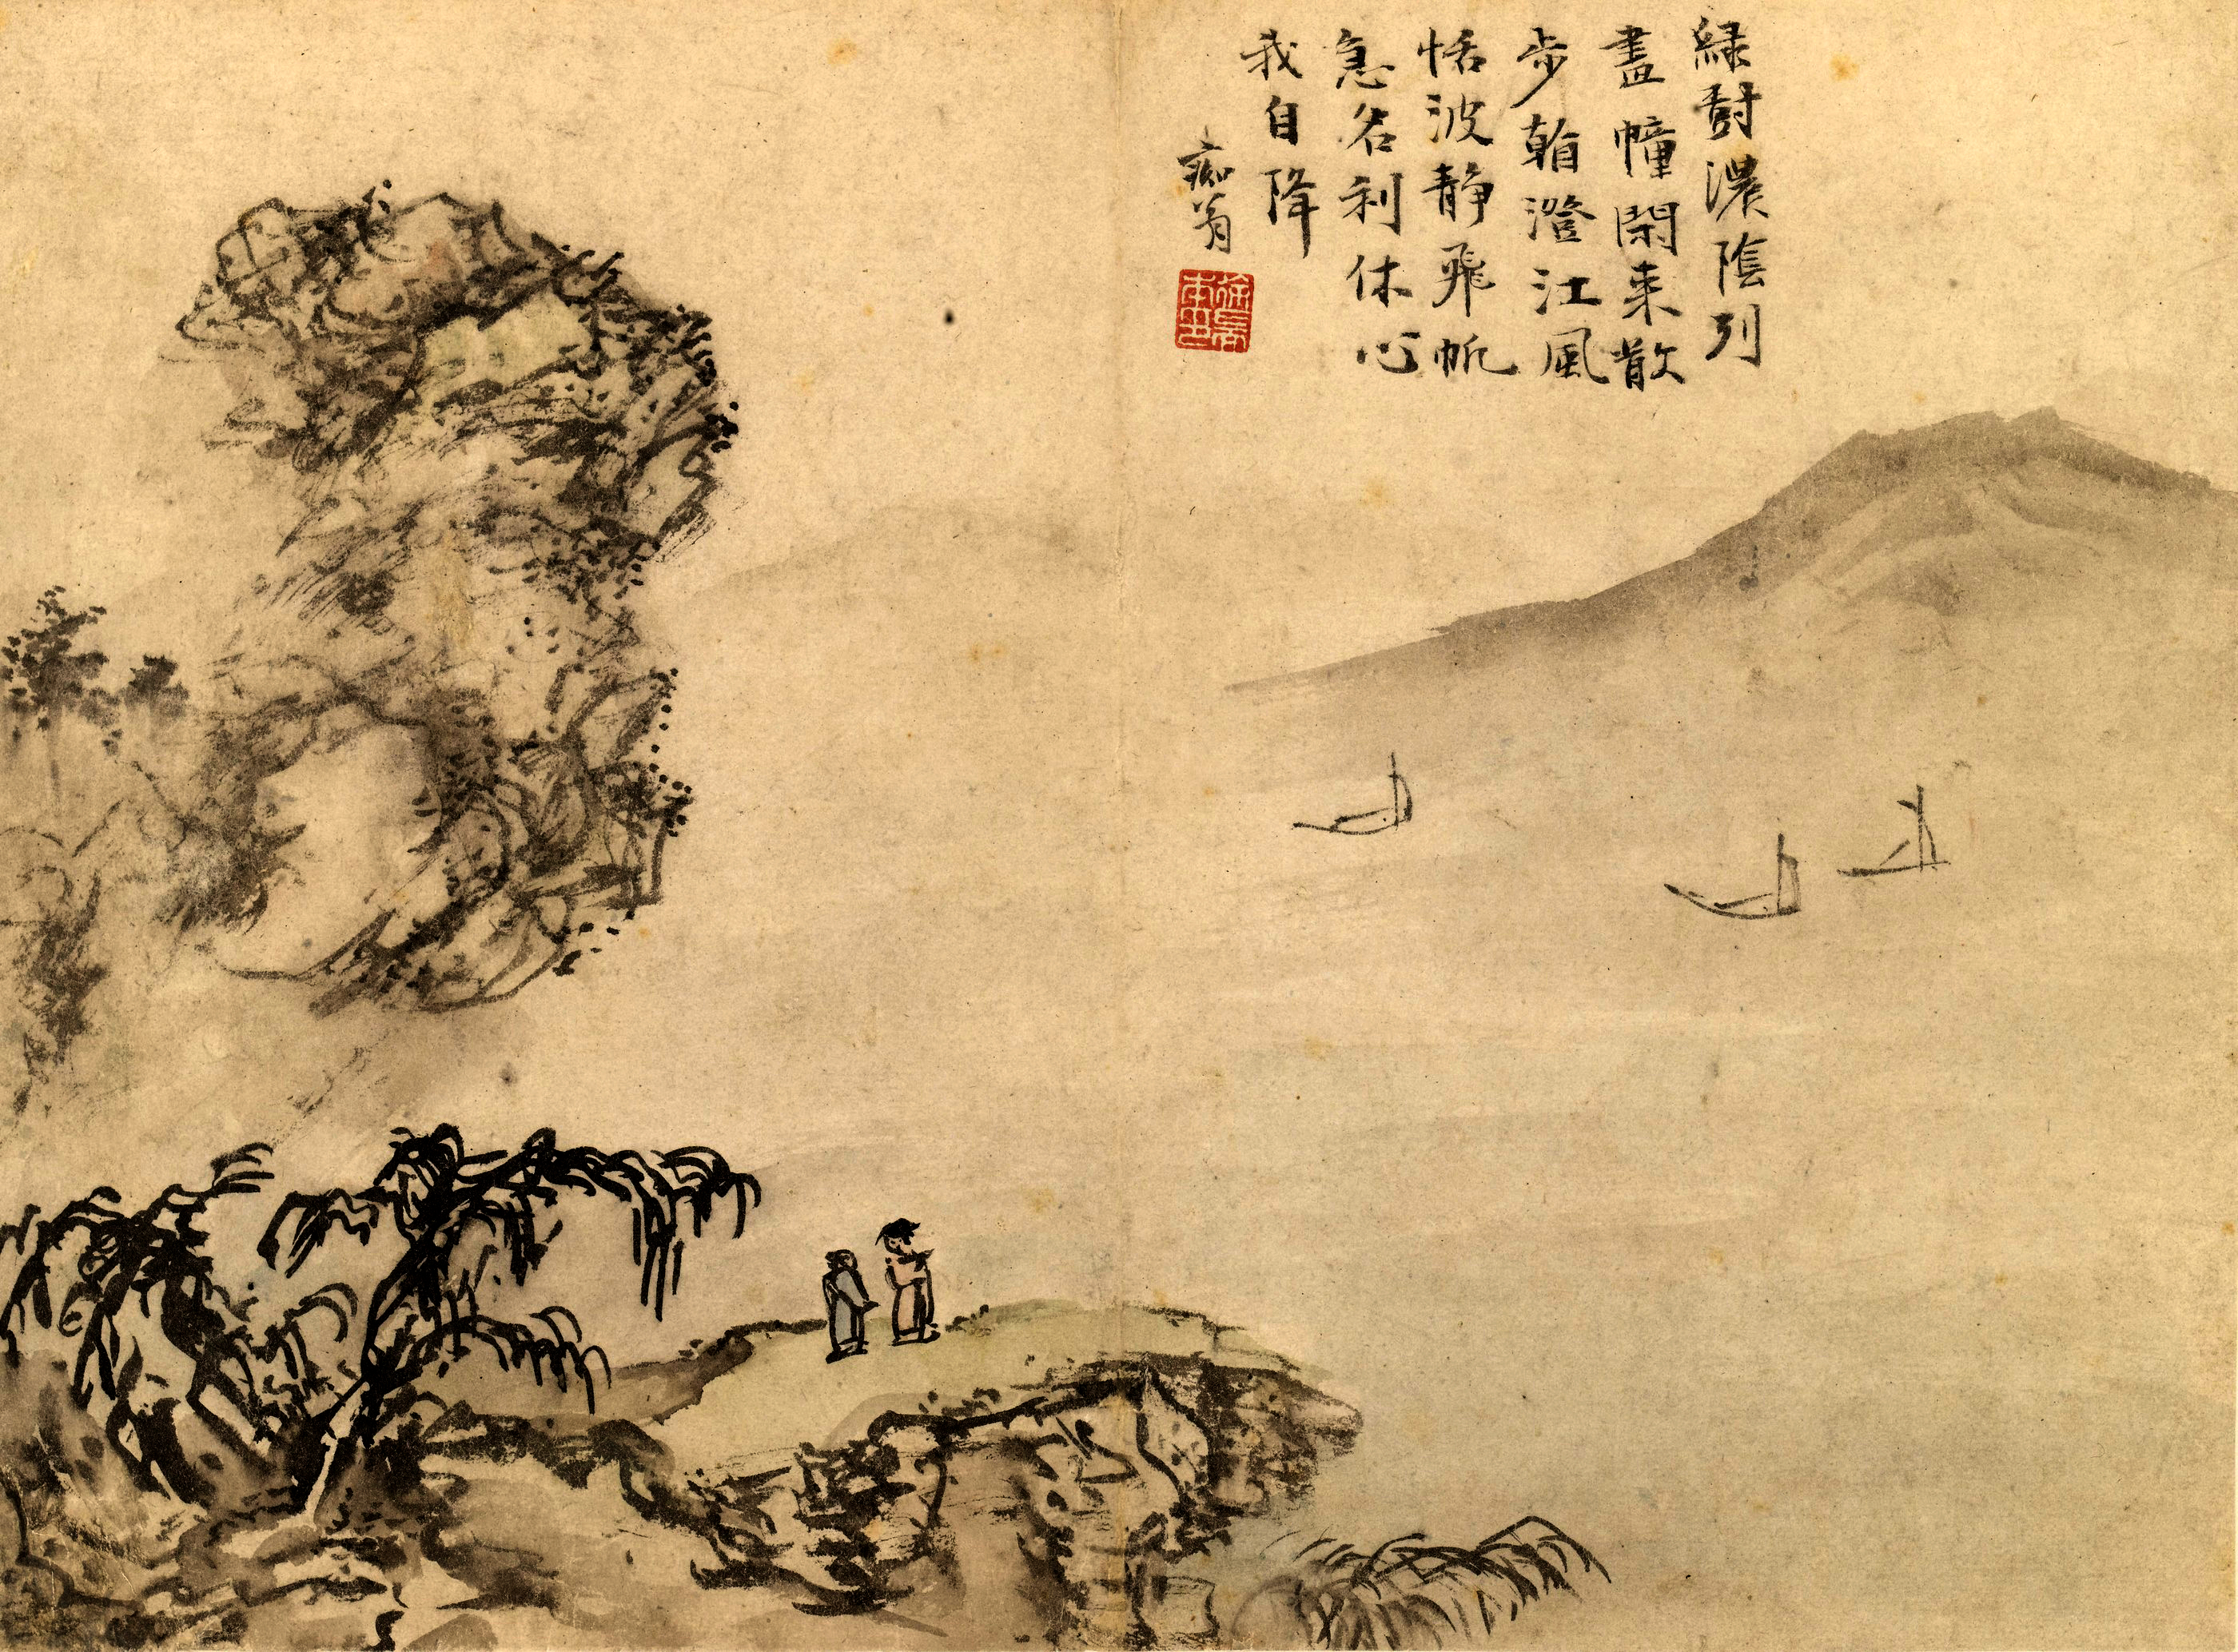 緑尌濃陰列
畫幢閑来散
步朝澄江風
恬波静飛帆
急名利休心
我自降
痴翁